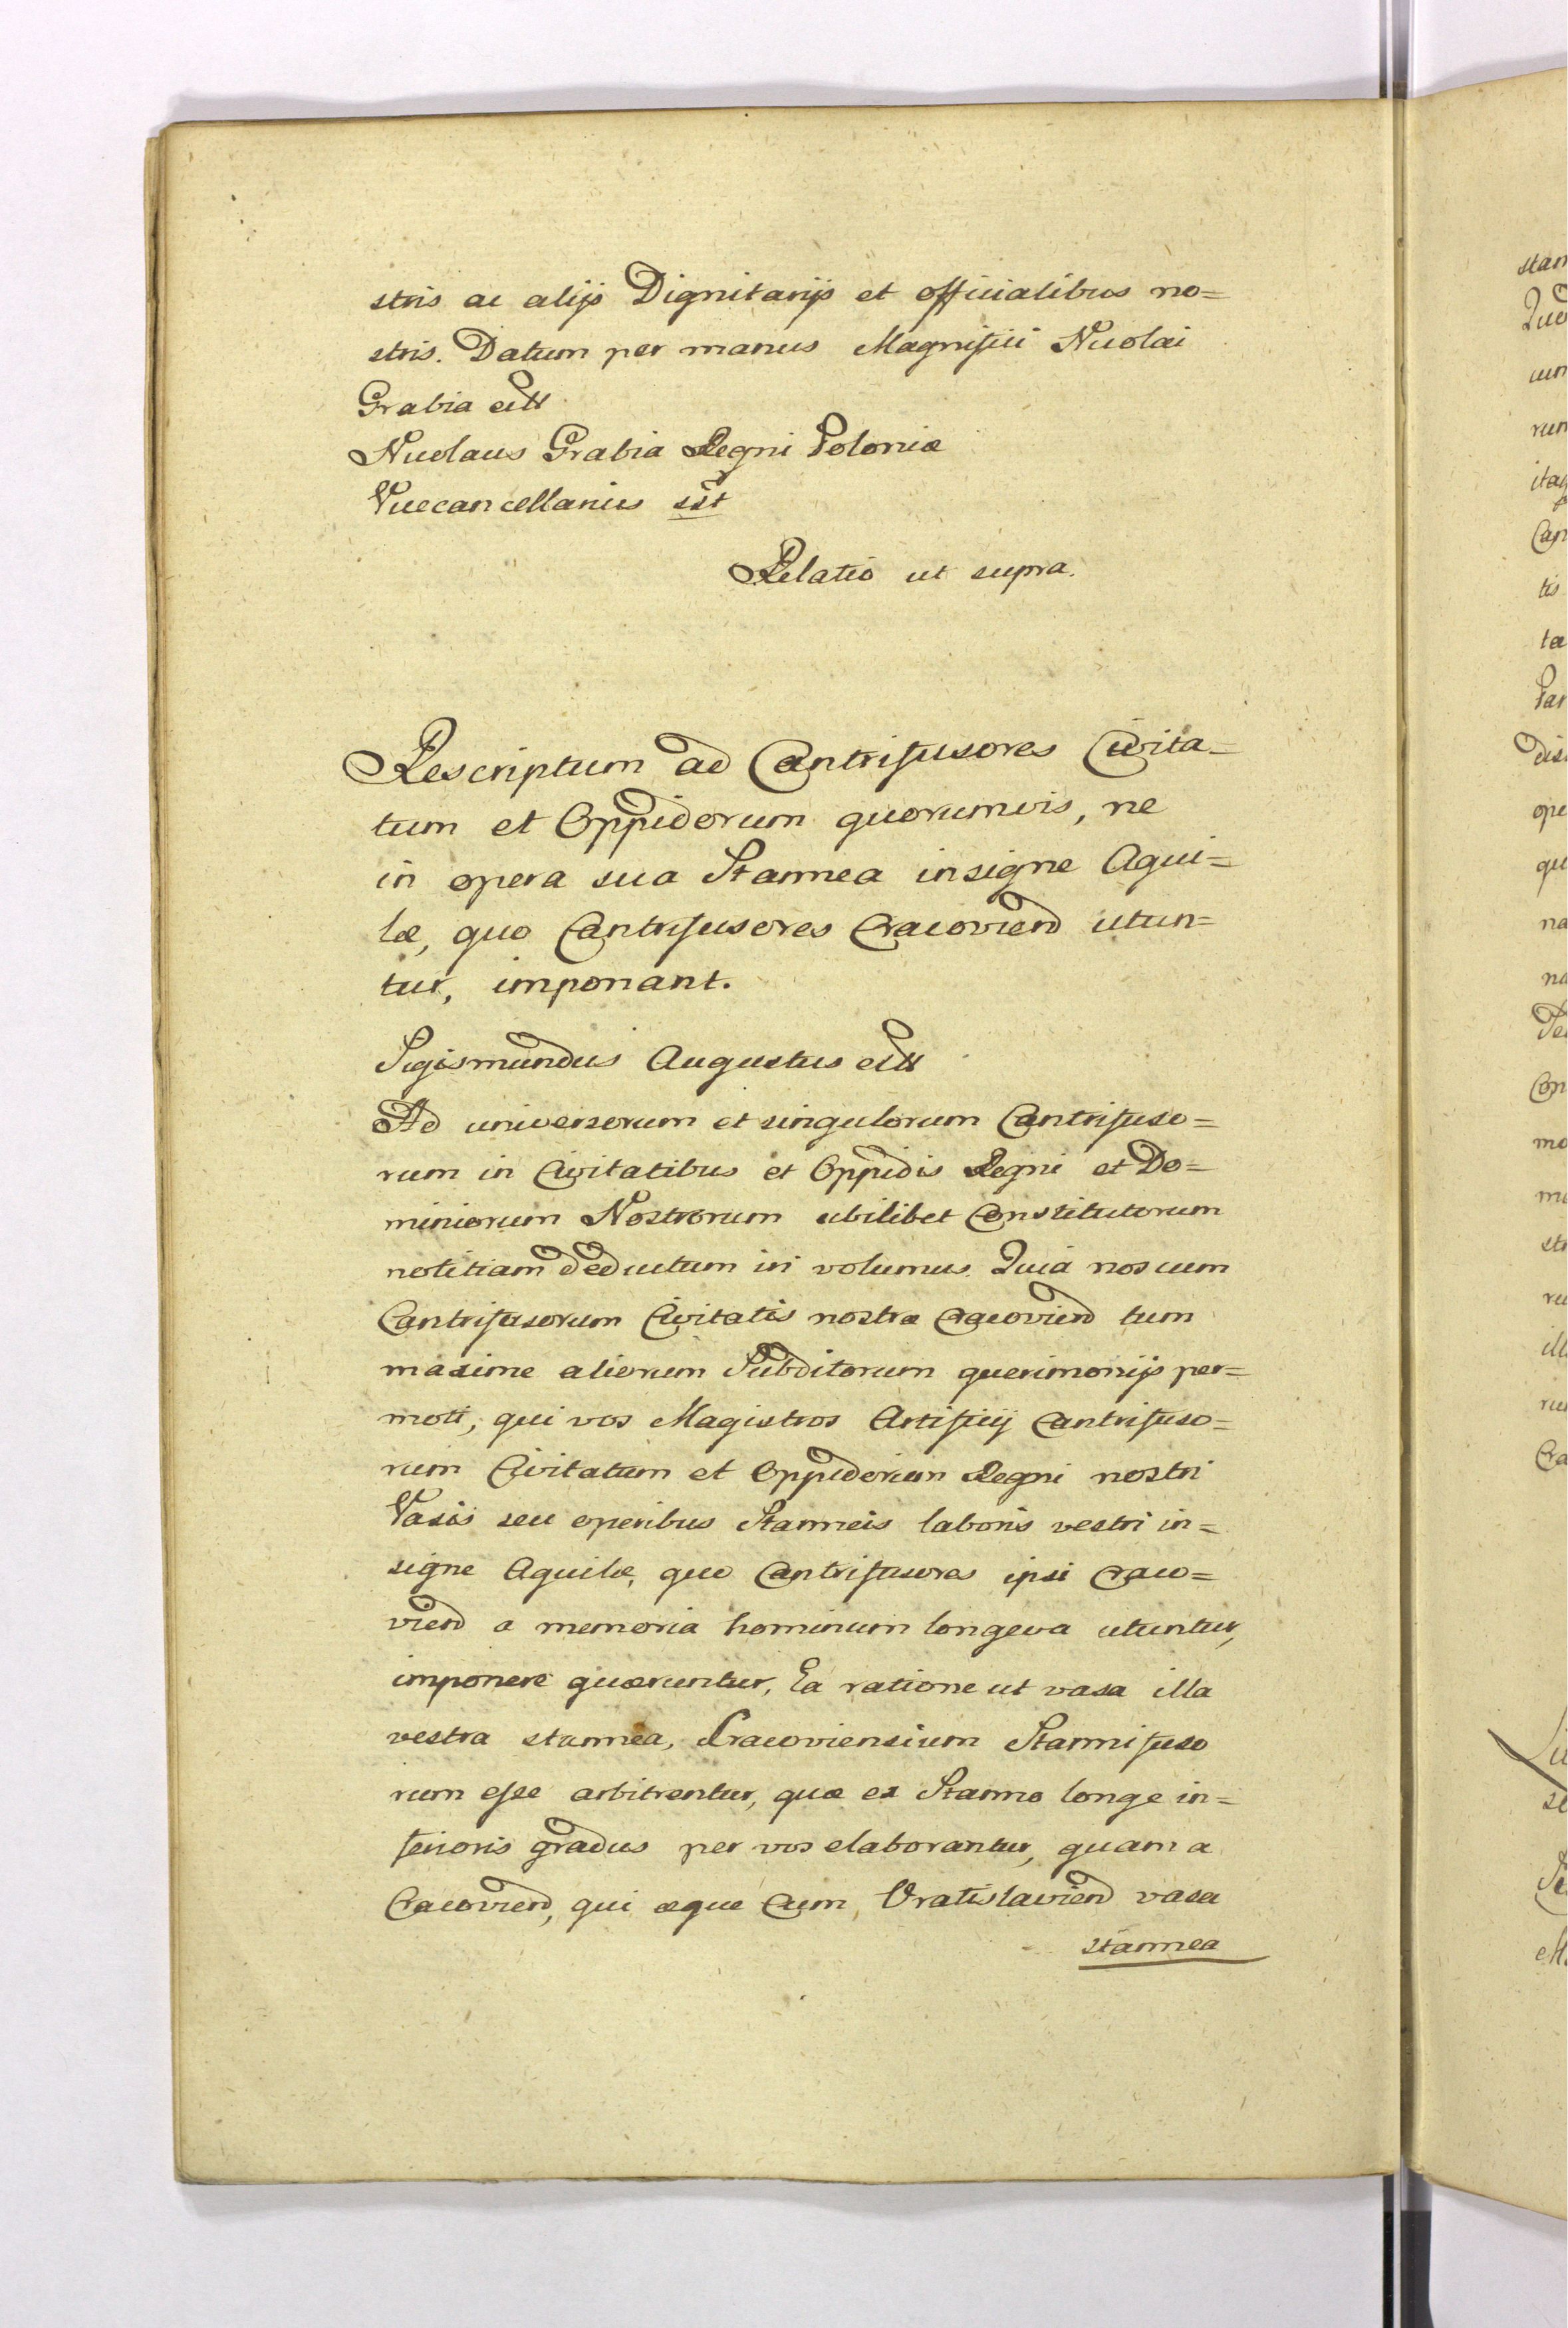 stris ac alijs Dignitarijs et officialibus no=
stris. Datum per manus Magnifici Nicolai
Grabia ett
Nicolaus Grabia Regni Poloniæ
Vicecancellarius sst
Relatio ut supra.
Rescriptum ad Cantrifusores Civita=
tum et Oppidorum quorumvis, ne
in opera sua Stannea insigne Aqui=
læ, quo Cantrifusores Cracoviend utun=
tur, imponant.
Sigismundus Augustus ett
Ad universorum et singulorum Cantrifuso=
rum in Civitatibus et Oppidis Regni et Do=
miniorum Nostrorum ubilibet Constitutorum
notitiam deductum iri volumus. Quia nos cum
Cantrifusorum Civitatis nostræ Cracoviend tum
maxime aliorum Subditorum querimonijs per=
moti, qui vos Magistros Artificij Cantrifuso=
rum Civitatum et Oppidorum Regni nostri
Vasis seu operibus Stanneis laboris vestri in=
signe Aquilæ, quo Cantrifusores ipsi Craco=
viend a memoria hominum longeva utuntur,
imponere quæruntur, Ea ratione ut vasa illa
vestra stannea, Cracoviensium Stannifuso
rum esse arbitrentur, quæ ex Stanno longe in=
ferioris gradus per vos elaborantur, quam a
Cracoviend, qui æque Cum Vratislaviend vasa
stannea